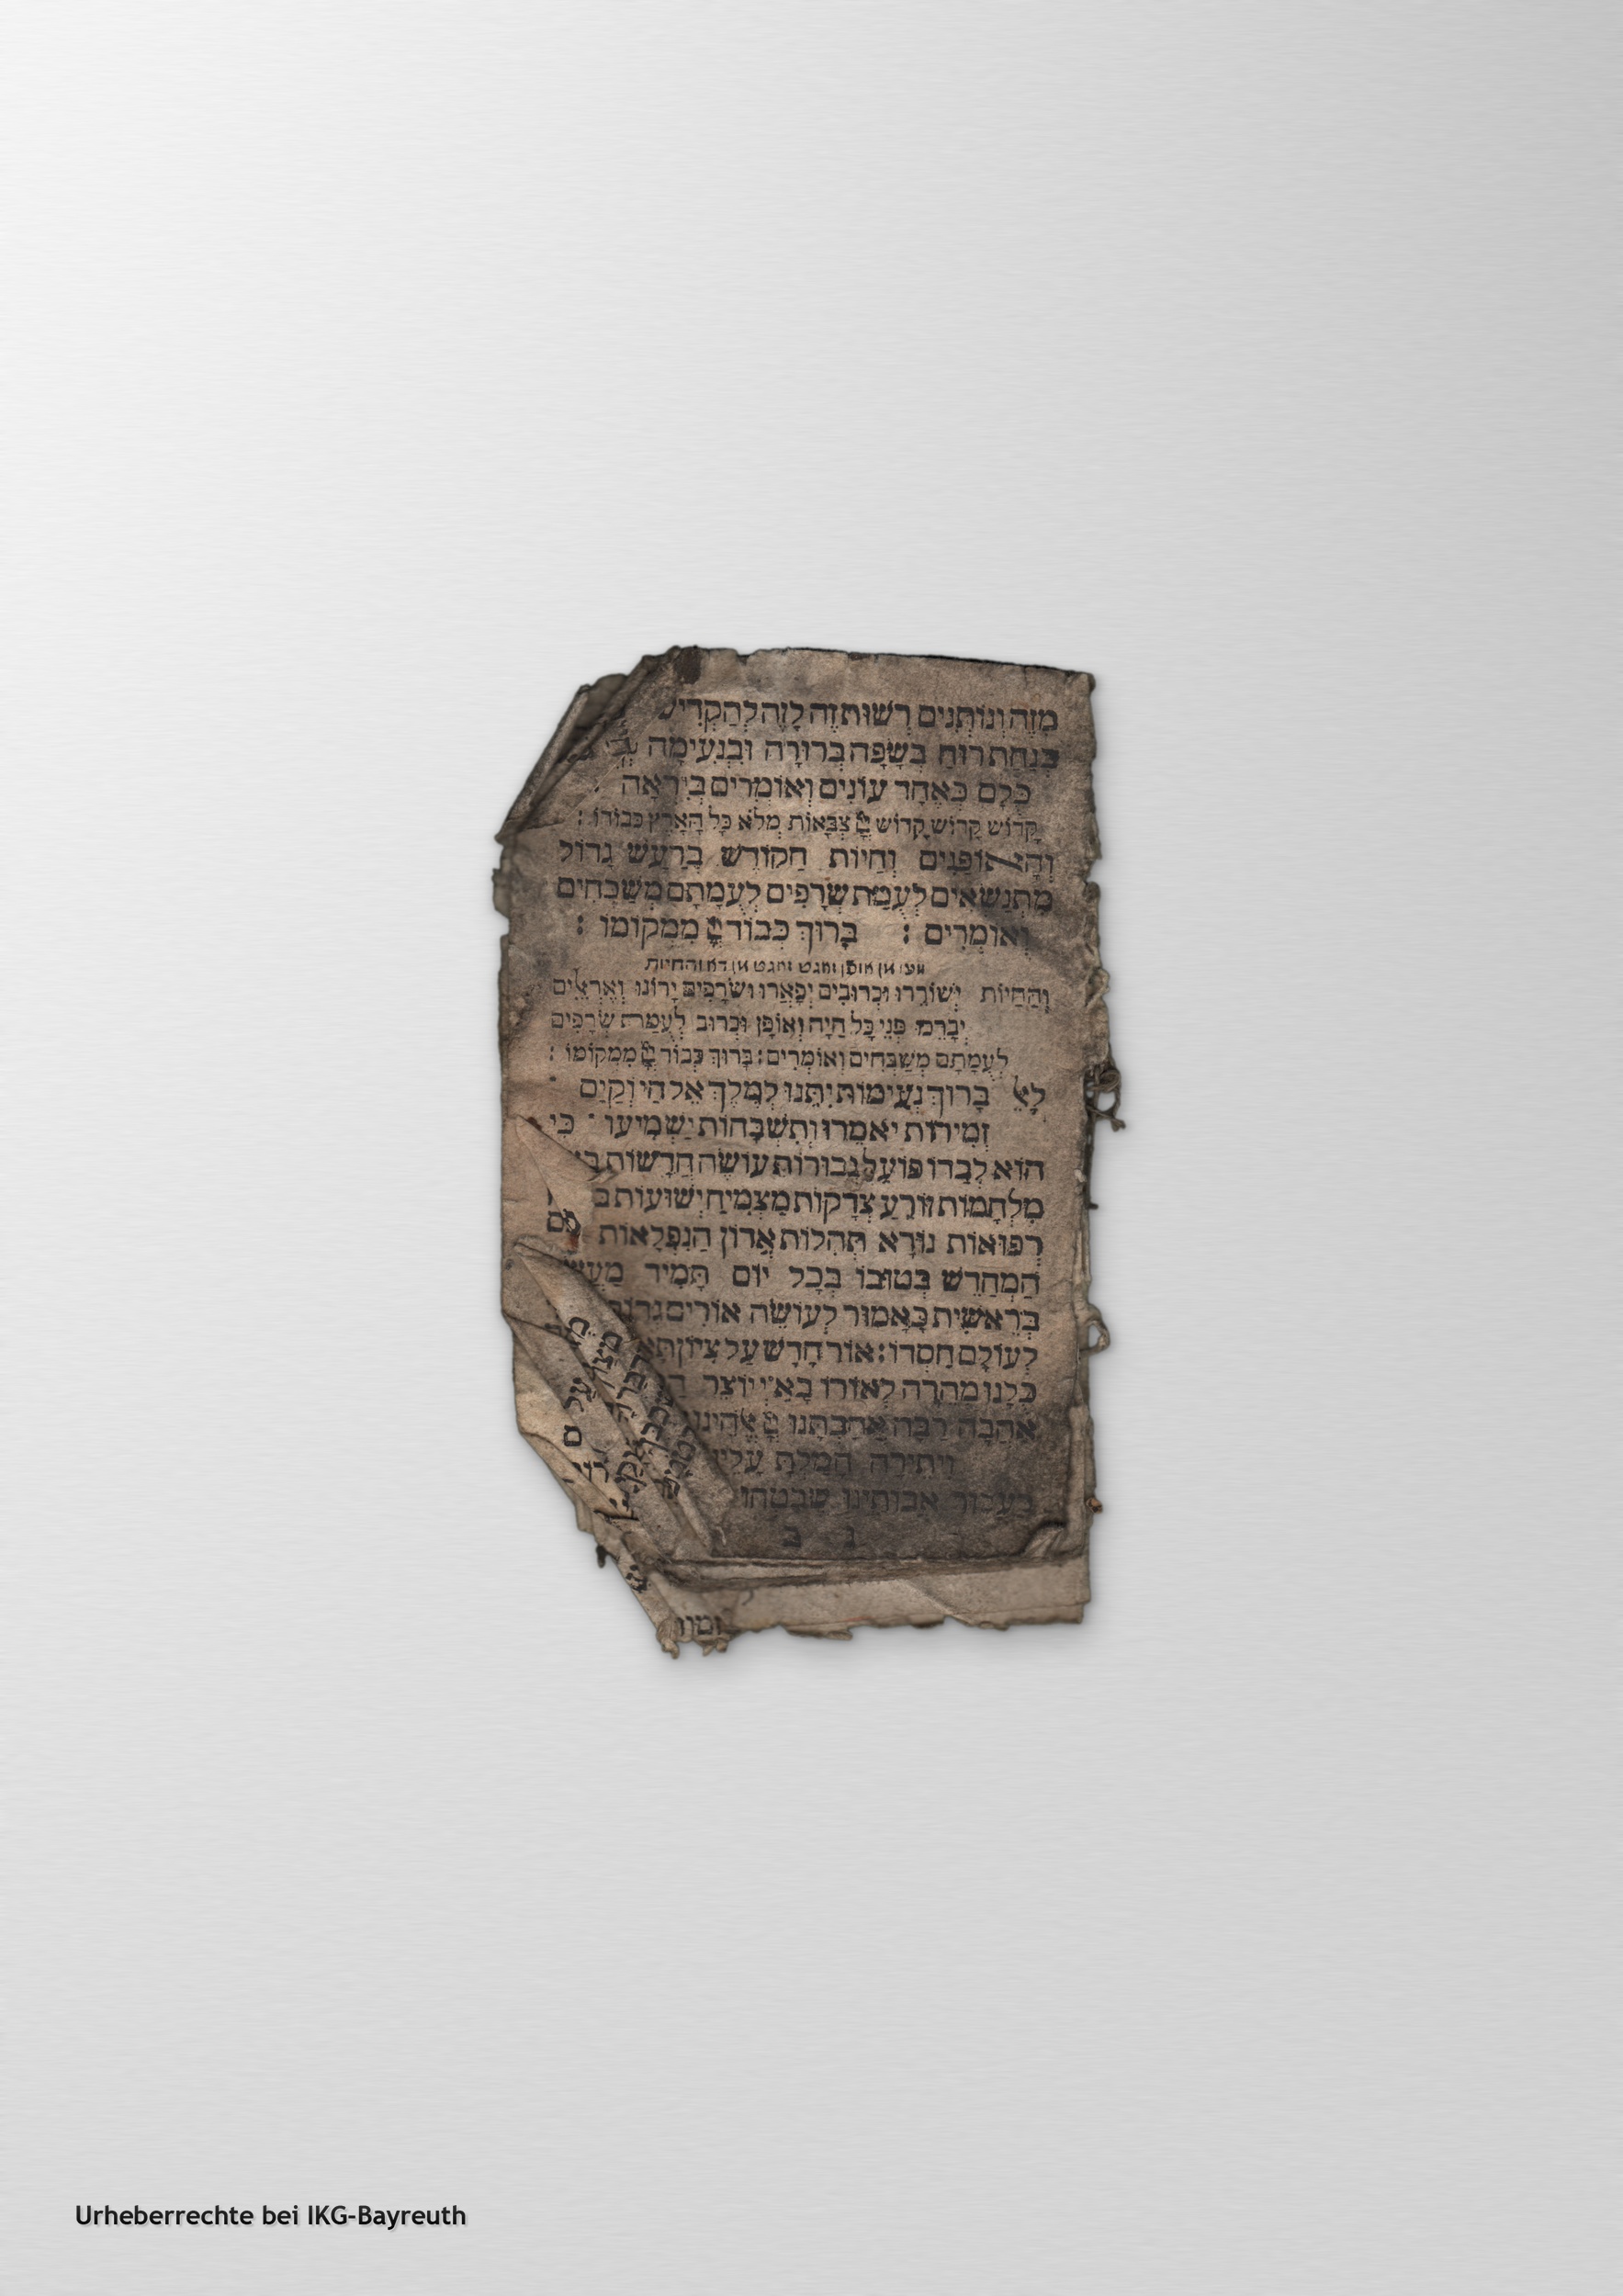 מִזֶה וְנוֹתְנִים רְשׁוּת זֶה לָזֶה לְהַקְדִישׁ
בְּנַחַת רוּחַ בְּשָׂפָה בְרוּרָה וּבִנְעִימָה
כֻּלָם כְּאֶחָד עוֹנִים וְאוֹמְרִים בְּיִרְאָה
קָדוֹשׁ קָדוֹשׁ קָדוֹשׁ יְיָ צְבָאוֹת מְלֹא כָל הָאָרֶץ כְּבוֹדוֹ :
וְהָאוֹפַנִים וְחַיוֹת הַקוֹדֶשׁ בְּרַעַשׁ גָדוֹל
מִתְנַשְׂאִים לְעֻמַת שְׂרָפִים לְעֻמָתָם מְשַׁבְּחִים
וְאוֹמְרִים : בָּרוּךְ כְּבוֹד יְיָ מִמְקוֹמוֹ :
וְהַחַיוֹת יְשׁוֹרֵרוּ וּכְרוּבִים יְפָאֵרוּ וּשְׂרָפִים יָרוֹנוּ וְאֶרְאֶלִים
יְבָרֵכוּ פְּנֵי כָּל חַיָה וְאוֹפָן וּכְרוּב לְעֻמַת שְׂרָפִים
לְעֻמָתָם מְשַׁבְּחִים וְאוֹמְרִים : בָּרוּךְ כְּבוֹד יְיָ מִמְקוֹמוֹ :
לָאֵל בָּרוּךְ נְעִימוֹת יִתֵּנוּ לְמֶלֶךְ אֵל חַי וְקַיָם
זְמִירוֹת יֹאמֵרוּ וְתִשְׁבָּחוֹת יַשְׁמִיעוּ כִּי
הוּא לְבַדוֹ פּוֹעֵל גְבוּרוֹת עוֹשֶׂה חֲדָשׁוֹת
מִלְחָמוֹת זוֹרֵעַ צְדָקוֹת מַצְמִיחַ יְשׁוּעוֹת
רְפוּאוֹת נוֹרָא תְהִלוֹת אֲדוֹן הַנִפְלָאוֹת
הַמְחַדֵשׁ בְּטוּבוֹ בְּכָל יוֹם תָּמִיד מַעֲשֵׂה
בְרֵאשִׁית כָּאָמוּר לְעוֹשֵׂה אוֹרִים גְדוֹלִים
לְעוֹלָם חַסְדוֹ : אוֹר חָדָשׁ עַל צִיוֹן
כֻּלָנוּ מְהֵרָה לְאוֹרוֹ בָּאַ״י יוֹצֵר
אַהֲבָה רַבָּה אֲהַבְתָּנוּ יְיָ אֱלֹהֵינוּ
וִיתֵירָה חָמַלְתָּ עָלֵינוּ
בַּעֲבוּר אֲבוֹתֵינוּ שֶׁבָּטְחוּ
ג ב
Urheberrechte bei IKG-Bayreuth